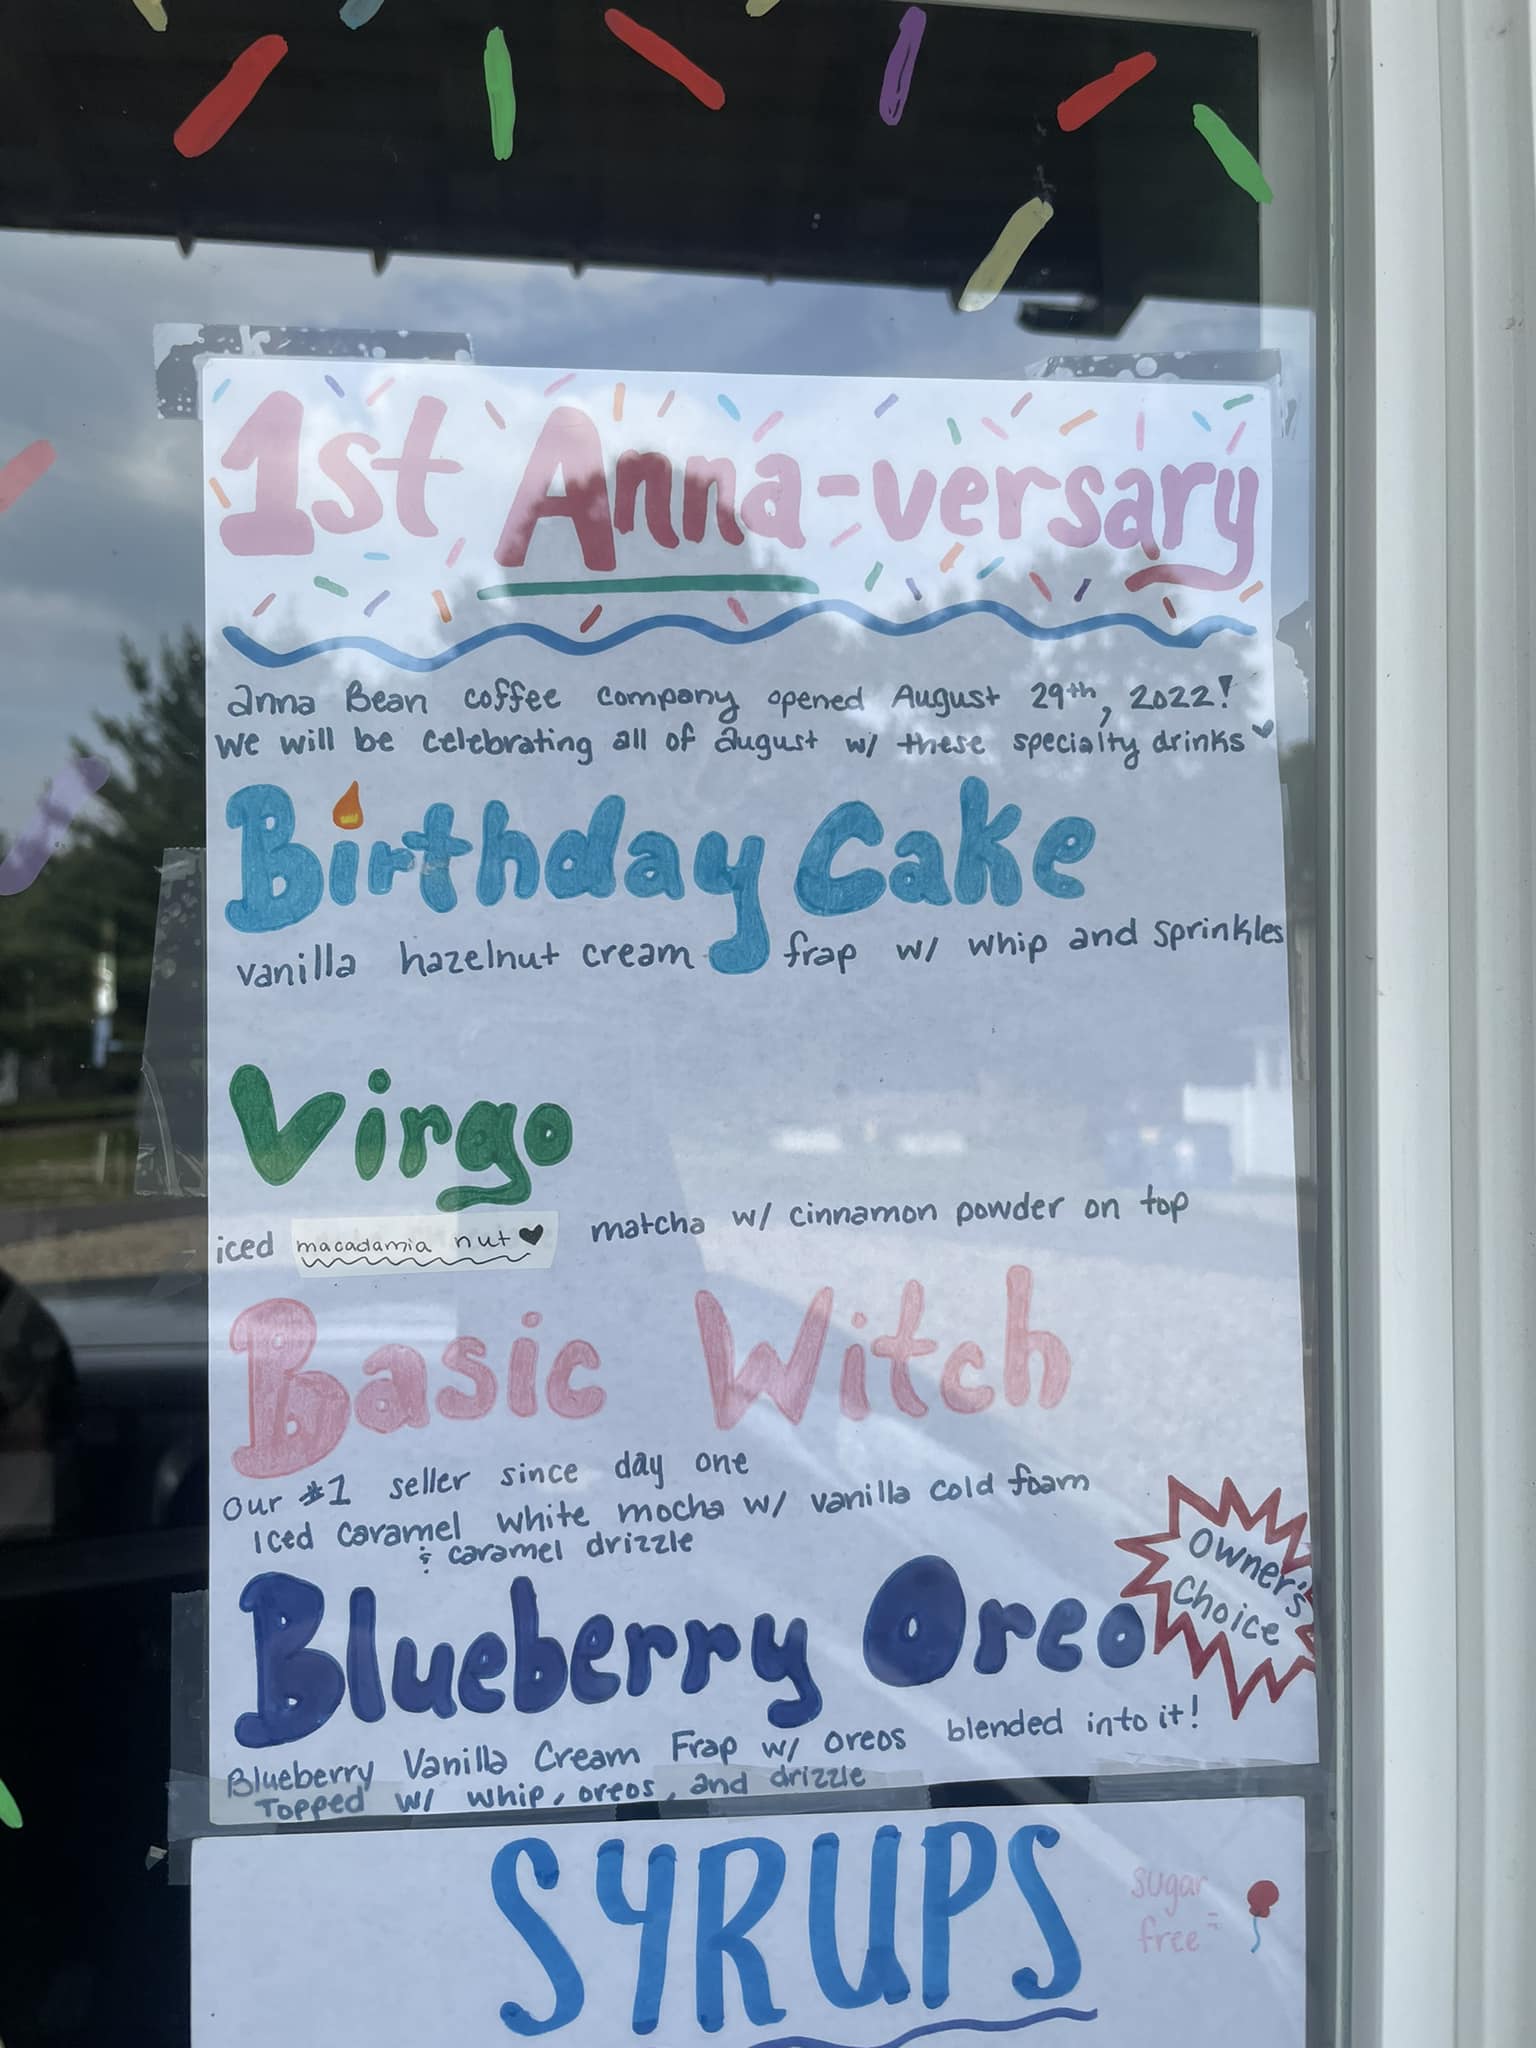 1st Anna-versary
anna Bean coffee company opened August 29th, 2022!
we will be celebrating all of august w/ these specialty drinks
Birthday Cake
vanilla hazelnut cream frap w/ whip and sprinkles
Virgo
iced macadamia nut matcha w/ cinnamon powder on top
Basic Witch
our #1 seller since day one
Iced caramel white mocha w/ vanilla cold foam
& caramel drizzle
Blueberry Oreo
Owner's
Choice
Blueberry Vanilla Cream Frap w/ oreos blended into it!
Topped w/ whip, oreos, and drizzle
SYRUPS
sugar
free =